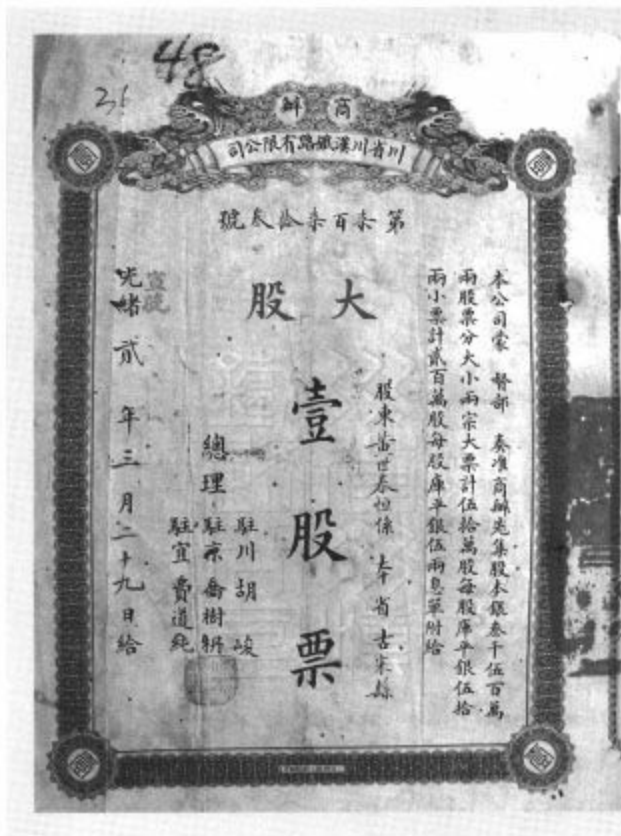 48
36
商辦
川省川漢鐵路有限公司
第柒百柒拾叁號
本公司蒙 督部 奏准商辦先集股本銀叁千伍百萬
兩股票分大小兩宗大票計伍拾萬股每股庫平銀伍拾
兩小票計貳百萬股每股庫平銀伍兩息單附給
大股
股東 世春 係 本省古宋縣
壹股票
總理
駐川胡峻
駐京喬樹枬
駐宜費道純
宣統
光緒貳年三月二十九日給